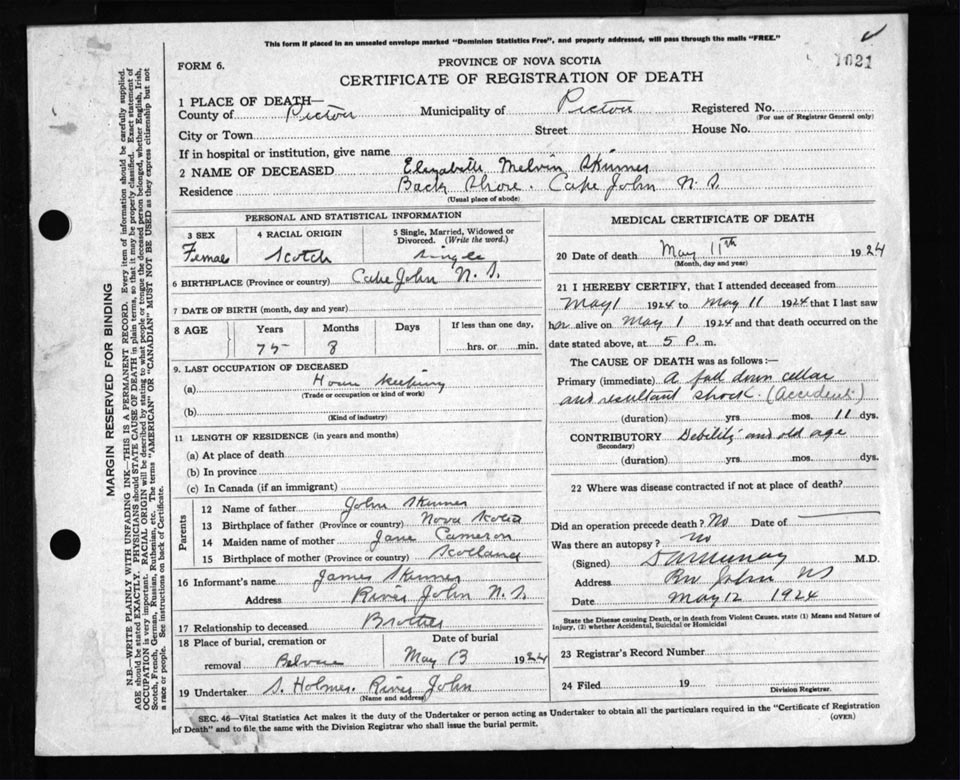 This form if placed in an unsealed envelope marked "Dominion Statistics Free", and properly addressed, will pass through the mails "FREE."
1621
FORM 6.
PROVINCE OF NOVA SCOTIA
CERTIFICATE OF REGISTRATION OF DEATH
1 PLACE OF DEATH—
County of Pictou Municipality of Pictou Registered No.
(For use of Registrar General only)
City or Town Street House No.
If in hospital or institution, give name
2 NAME OF DECEASED Elizabeth Melvin Skinner
Residence Back Shore. Cape John N.S.
(Usual place of abode)
PERSONAL AND STATISTICAL INFORMATION
3 SEX 4 RACIAL ORIGIN 5 Single, Married, Widowed or Divorced. (Write the word.)
Female Scotch Single
6 BIRTHPLACE (Province or country) Cape John N.S.
7 DATE OF BIRTH (month, day and year)
8 AGE Years Months Days If less than one day,
75 8 hrs. or min.
9. LAST OCCUPATION OF DECEASED
(a) House keeping
(Trade or occupation or kind of work)
(b)
(Kind of industry)
11 LENGTH OF RESIDENCE (in years and months)
(a) At place of death
(b) In province
(c) In Canada (if an immigrant)
Parents
12 Name of father John Skinner
13 Birthplace of father (Province or country) Nova Scotia
14 Maiden name of mother Jane Cameron
15 Birthplace of mother (Province or country) Scotland
16 Informant's name James Skinner
Address River John N.S.
17 Relationship to deceased Brother
18 Place of burial, cremation or Date of burial
removal May 13 1924
19 Undertaker S. Holmes. River John
(Name and address)
MEDICAL CERTIFICATE OF DEATH
20 Date of death May 11th 1924
(Month, day and year)
21 I HEREBY CERTIFY, that I attended deceased from
May 1 1924 to May 11 1924 that I last saw
her alive on May 1 1924 and that death occurred on the
date stated above, at 5 P. m.
The CAUSE OF DEATH was as follows:—
Primary (immediate) A fall down cellar
and resultant shock. (Accident)
(duration) yrs. mos. 11 dys.
CONTRIBUTORY Debility and old age
(Secondary)
(duration) yrs. mos. dys.
22 Where was disease contracted if not at place of death?
Did an operation precede death? No Date of
Was there an autopsy? No
(Signed) M.D.
Address John NS
Date May 12 1924
State the Disease causing Death, or in death from Violent Causes, state (1) Means and Nature of
Injury, (2) whether Accidental, Suicidal or Homicidal
23 Registrar's Record Number
24 Filed 19
Division Registrar.
SEC. 46—Vital Statistics Act makes it the duty of the Undertaker or person acting as Undertaker to obtain all the particulars required in the "Certificate of Registration
of Death" and to file the same with the Division Registrar who shall issue the burial permit.
(OVER)
MARGIN RESERVED FOR BINDING
N.B.—WRITE PLAINLY WITH UNFADING INK—THIS IS A PERMANENT RECORD. Every item of information should be carefully supplied.
AGE should be stated EXACTLY. PHYSICIANS should STATE CAUSE OF DEATH in plain terms, so that it may be properly classified. Exact statement of
OCCUPATION is very important. RACIAL ORIGIN will be described by stating to what people or tongue the deceased person belonged, whether English, Irish,
Scotch, French, German, Russian, Ruthenian, etc. The terms "AMERICAN" OR "CANADIAN" MUST NOT BE USED as they express citizenship but not
a race or people. See instructions on back of Certificate.